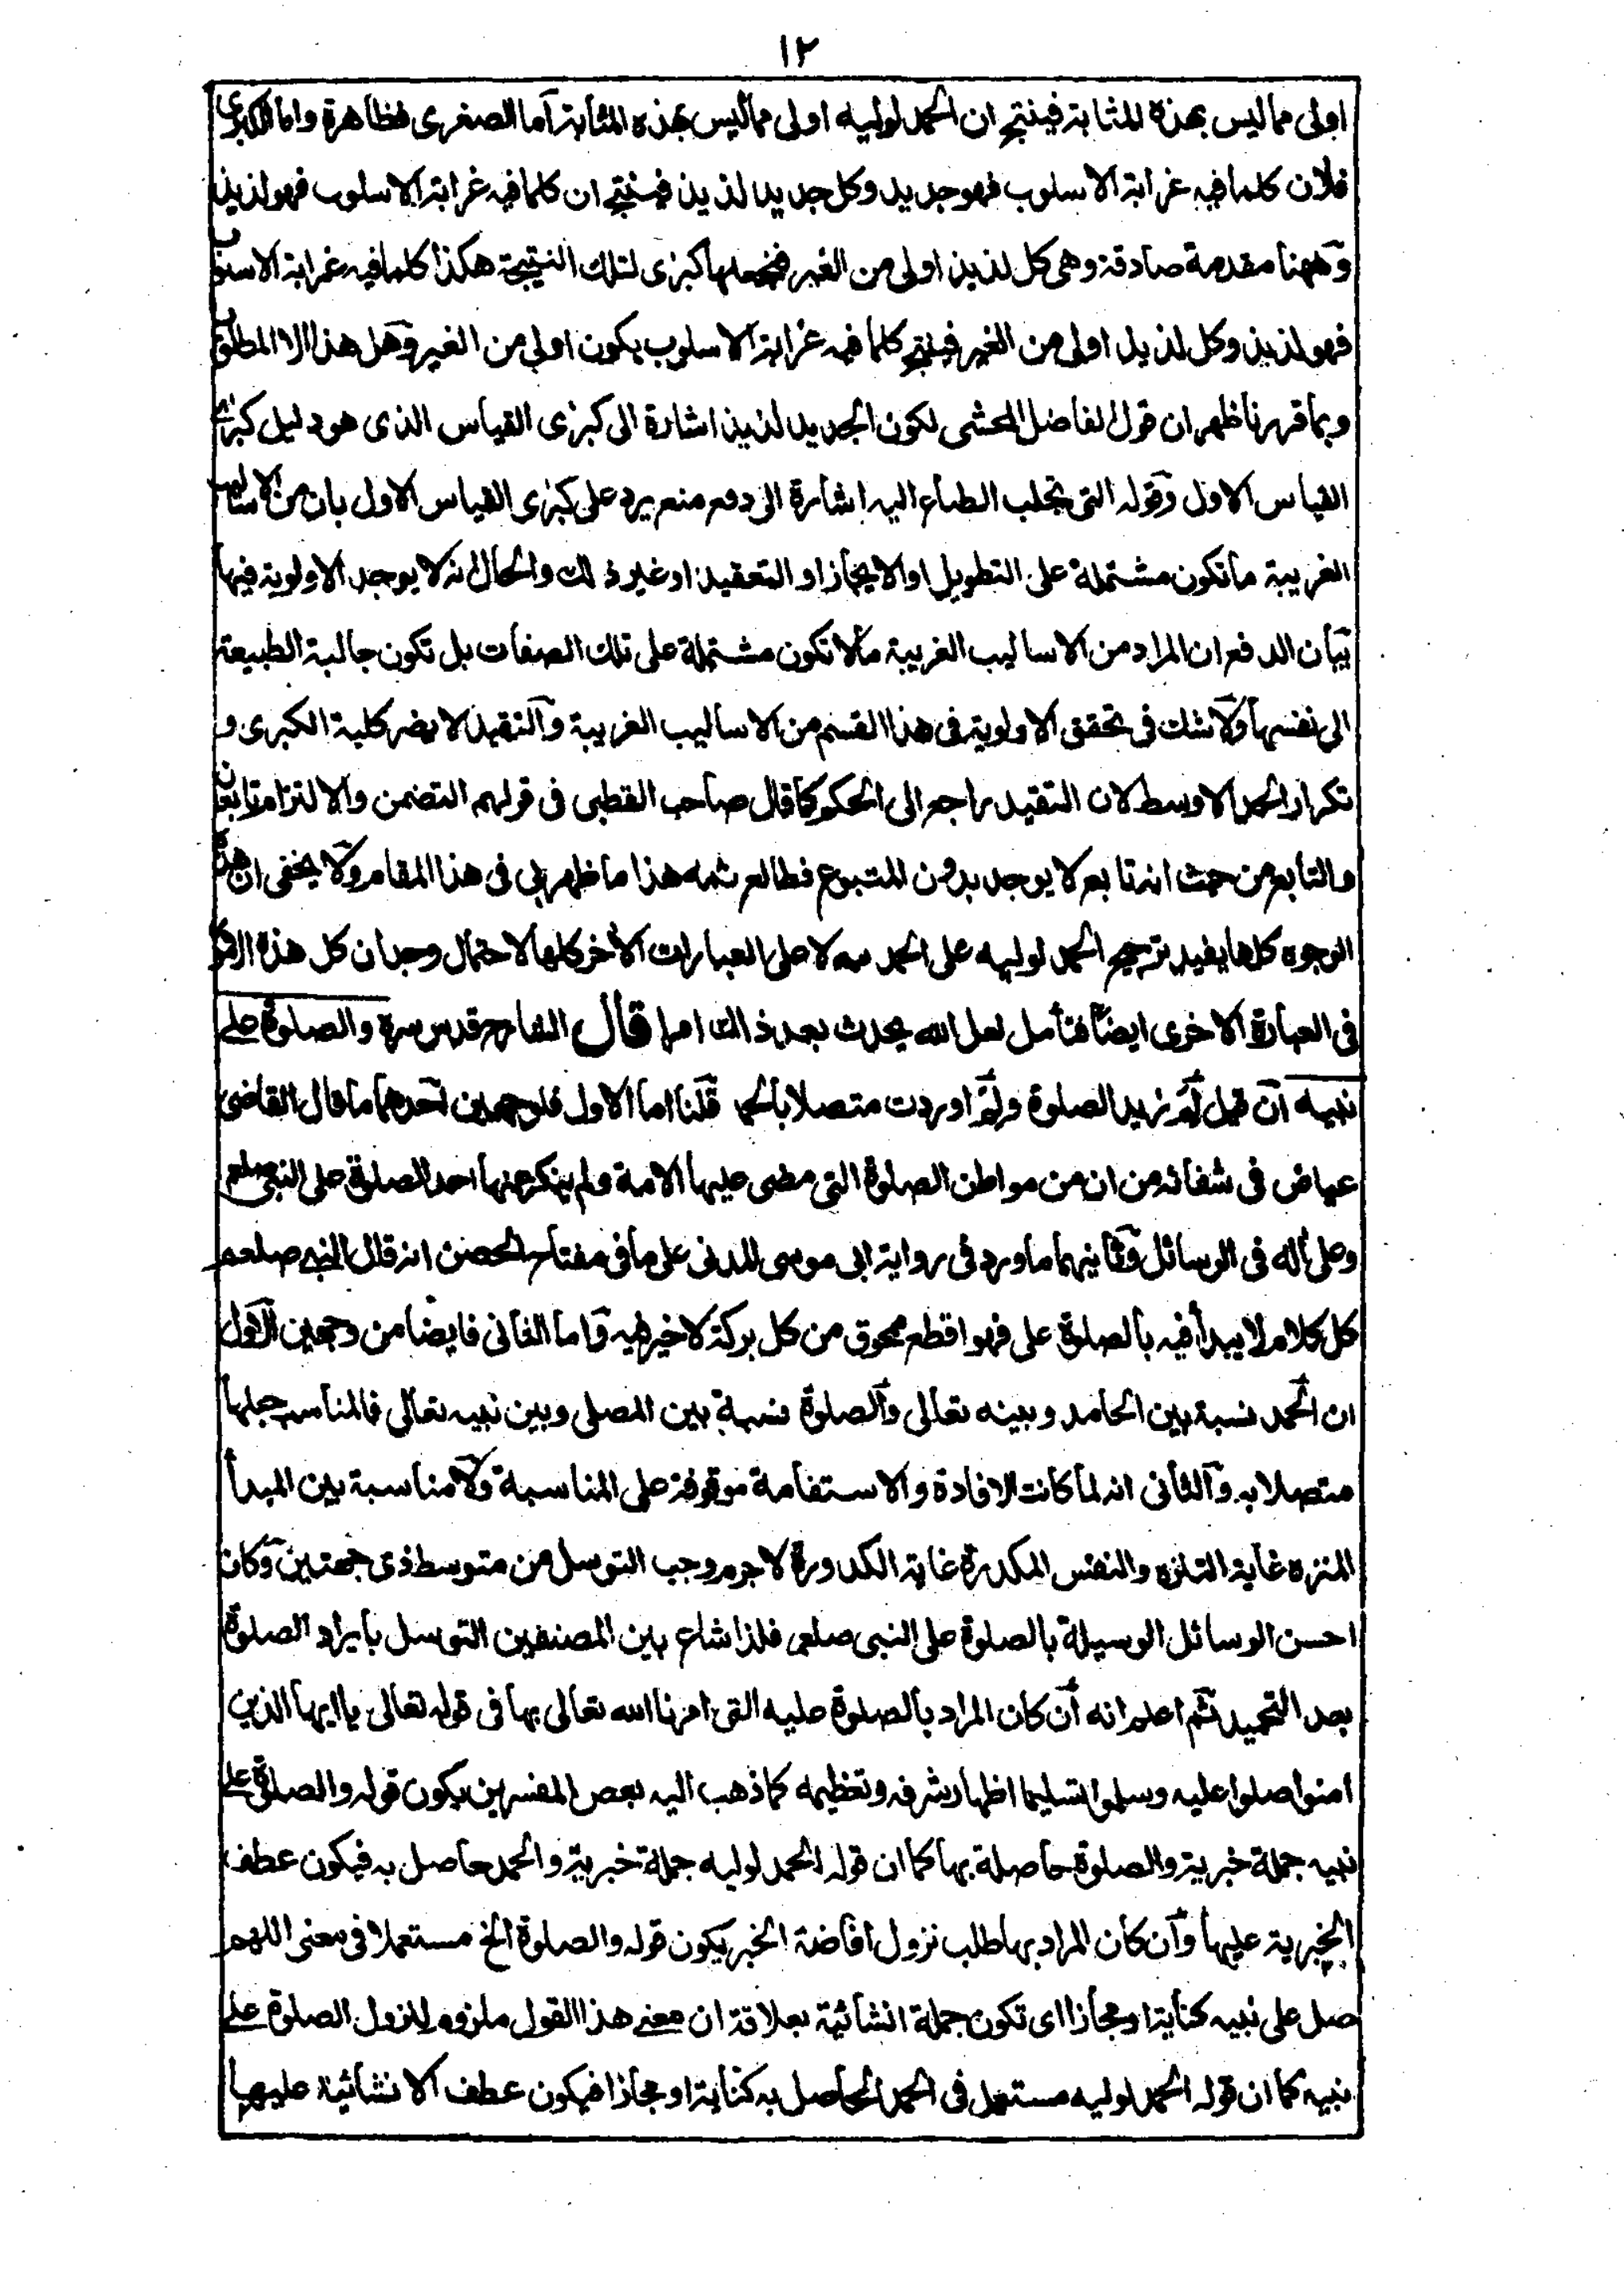 ١٢
اولى مما ليس بهذه المثابة فينتج ان الحمد لوليه اولى مما ليس بهذه المثابة اما الصغرى فظاهرة واما الكبرى
فلان كلما فيه غرابة الاسلوب فهو جديد وكل جديد لذيذ فينتج ان كلما فيه غرابة الاسلوب فهو لذيذ
وههنا مقدمة صادقة وهى كل لذيذ اولى من الغير فنجعلها كبرى لتلك النتيجة هكذا كلما فيه غرابة الاسلوب
فهو لذيذ وكل لذيذ اولى من الغير فينتج كلما فيه غرابة الاسلوب يكون اولى من الغير وهل هذا الا المطلوب
وبما قررنا ظهر ان قول الفاضل المحشى لكون الجديد لذيذ اشارة الى كبرى القياس الذى هو دليل كبرى
القياس الاول وقوله التى تجلب الطباع اليه اشارة الى دفع منع يرد على كبرى القياس الاول بان من الاساليب
الغريبة ما تكون مشتملة على التطويل او الايجاز او التعقيد او غير ذلك والحال انه لا يوجد الاولوية فيها
بيان الدفع ان المراد من الاساليب الغريبة ما لا تكون مشتملة على تلك الصفات بل تكون جالبة الطبيعة
الى نفسها ولا شك فى تحقق الاولوية فى هذا القسم من الاساليب الغريبة والتقيد لا يضر كلية الكبرى و
تكرار الحد الاوسط لان التقيد راجع الى الحكم كما قال صاحب القطبى فى قولهم التضمن والالتزام تابعان
والتابع من حيث انه تابع لا يوجد بدون المتبوع فطالع ثمه هذا ما ظهر لى فى هذا المقام ولا يخفى ان هذه
الوجوه كلها يفيد ترجيح الحمد لوليه على الحمد لله لا على العبارات الأخر كلها لاحتمال وجدان كل هذه
فى العبارة الاخرى ايضا فتأمل لعل الله يحدث بعد ذالك امرا قال الشارح قدس سره والصلوة على
نبيه ان قيل لم زيد الصلوة ولم اوردت متصلا بالحمد قلنا اما الاول فلوجهين احدهما ما قال القاضى
عياض فى شفائه من ان من مواطن الصلوة التى مضى عليها الامة ولم ينكر عنها احد الصلوة على النبى صلعم
وعلى أله فى الرسائل وثانيهما ما ورد فى رواية ابى موسى المدنى على ما فى مفتاح الحصن انه قال النبى صلعم
كل كلام لا يبدأ فيه بالصلوة على فهو اقطع ممحوق من كل بركة لا خير فيه واما الثانى فايضا من وجهين الاول
ان الحمد نسبة بين الحامد وبينه تعالى والصلوة نسبة بين المصلى وبين نبيه تعالى فالمناسب جعلها
متصلا به والثانى انه لما كانت الافادة والاستفامة موقوفة على المناسبة ولا مناسبة بين المبدأ
المنزه غاية التنزه والنفس المكدرة غاية الكدورة لا جرم وجب التوسل من متوسط ذى جهتين وكان
احسن الوسائل الوسيلة بالصلوة على النبى صلعم فلذا شاع بين المصنفين التوسل بايراد الصلوة
بعد التحميد ثم اعلم انه ان كان المراد بالصلوة عليه التى امرنا الله تعالى بها فى قوله تعالى يا ايها الذين
امنوا صلوا عليه وسلموا تسليما اظهار شرفه وتعظيمه كما ذهب اليه بعض المفسرين يكون قوله والصلوة على
نبيه جملة خبرية والصلوة حاصلة بها كما ان قوله الحمد لوليه جملة خبرية والحمد حاصل به فيكون عطف
الخبرية عليها وان كان المراد بها طلب نزول افاضة الخير يكون قوله والصلوة الخ مستعملا فى معنى اللهم
صل على نبيه كناية او مجازا اى تكون جملة انشائية بعلاقة ان معنى هذا القول ملزوم لنزول الصلوة على
نبيه كما ان قوله الحمد لوليه مستعمل فى الحمد الحاصل به كناية او مجازا فيكون عطف الانشائية عليها